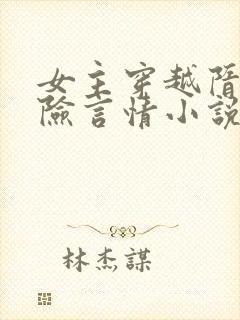 女主穿越隋
險言情小說
林杰謀